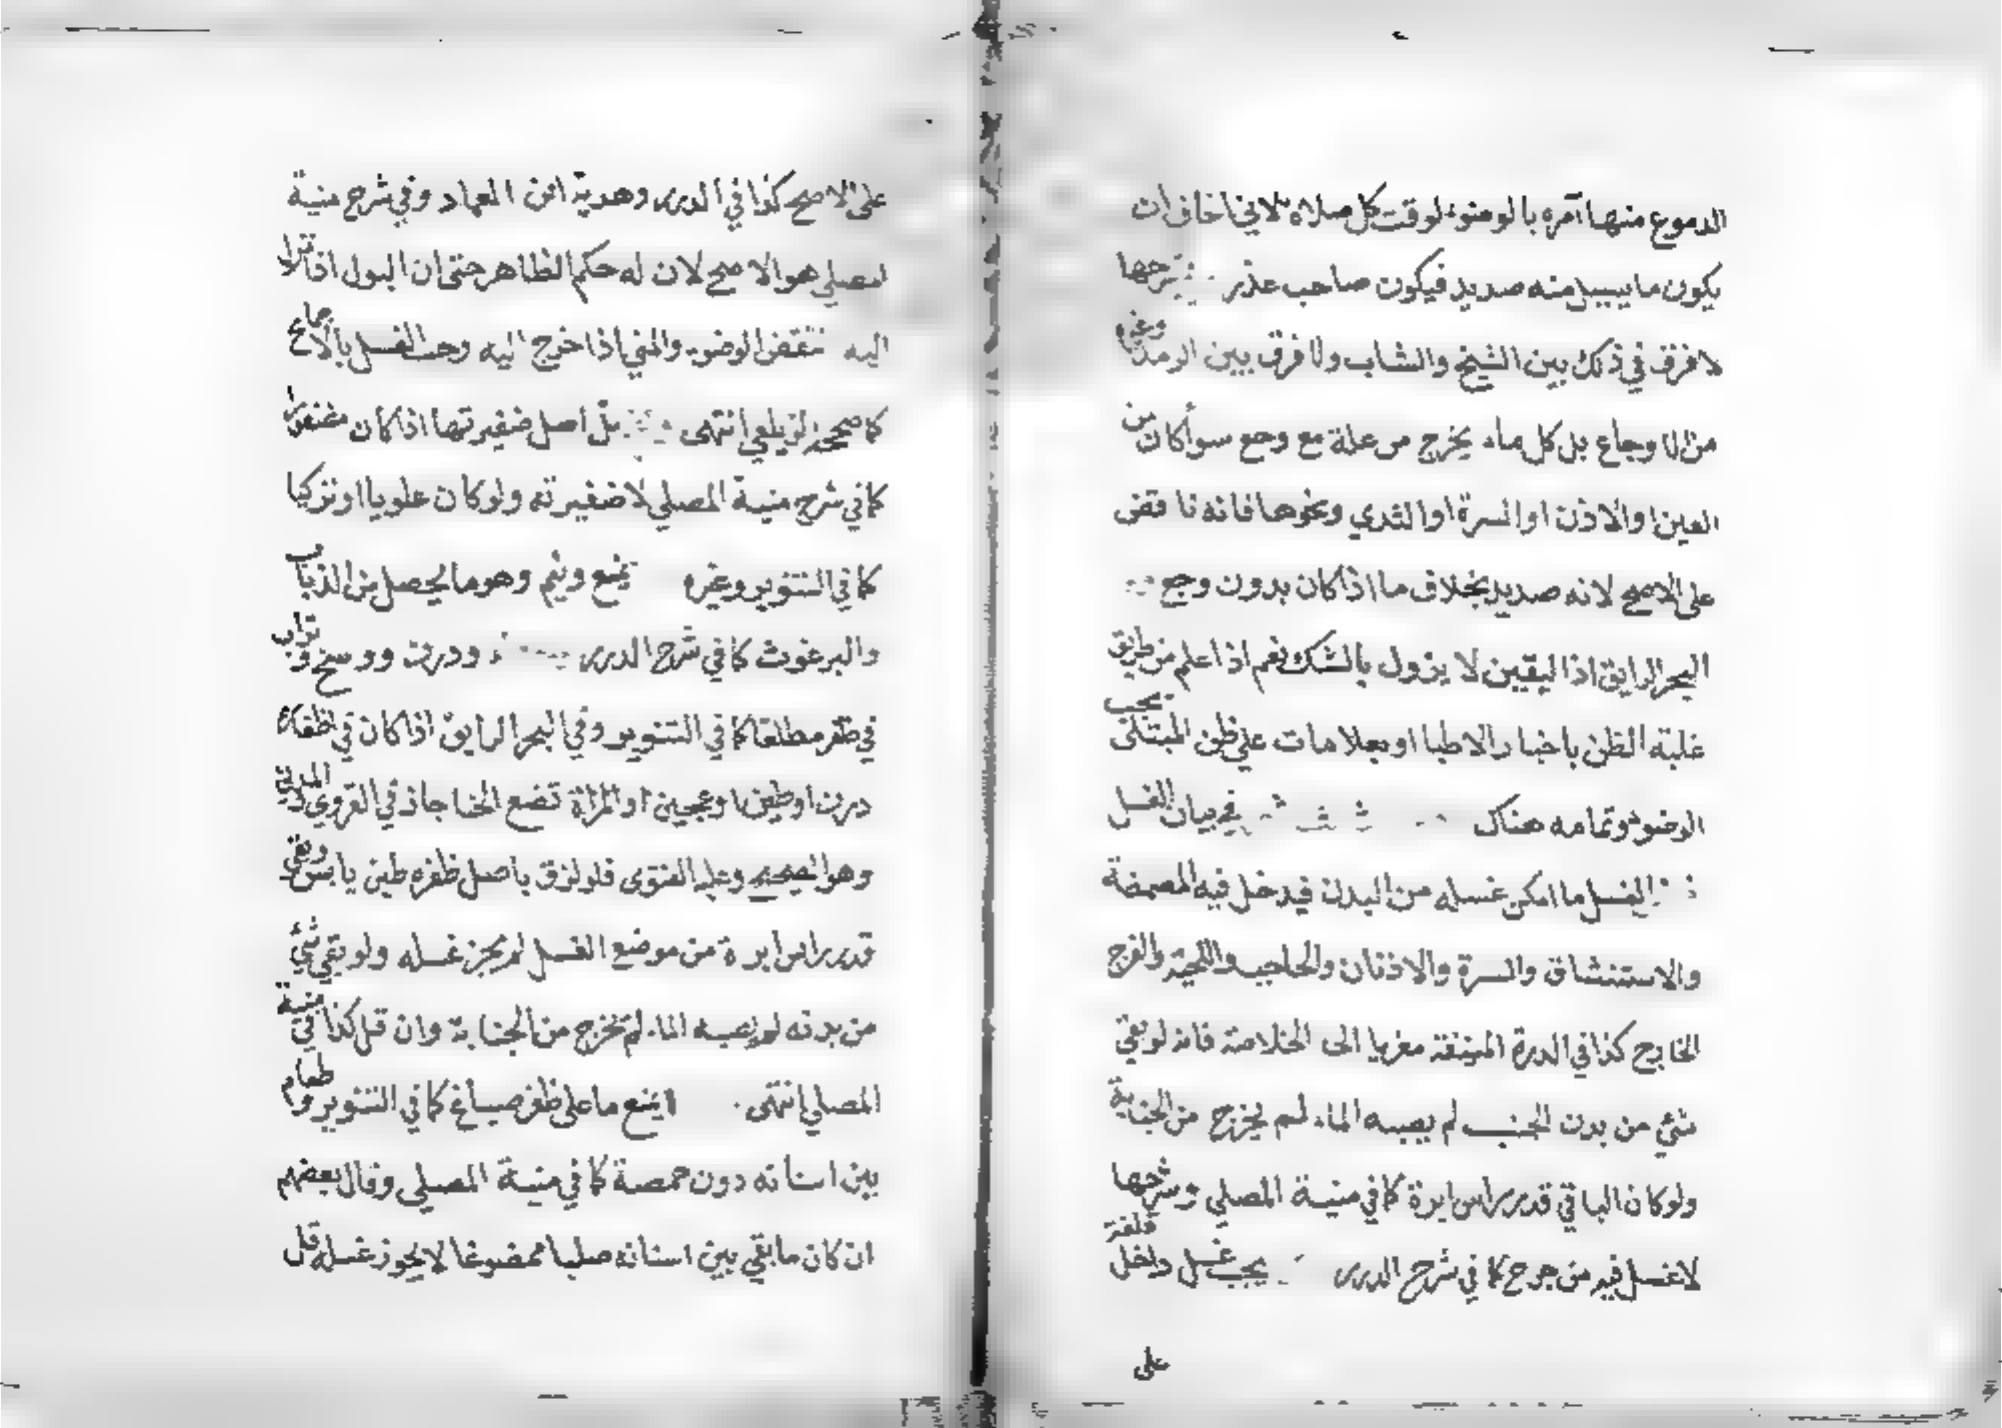 الدموع منها آمره بالوضوء لوقت كل صلاة لاني اخاف ان
يكون ما يسيل منه صديد فيكون صاحب عذر شرحها
لا فرق في ذلك بين الشيخ والشاب ولا فرق بين الرمد وغيره
من الاوجاع بل كل ماء يخرج من علة مع وجع سوأ كان من
العين او الاذن او السرة او الثدي ونحوها فانه ناقض
على الاصح لانه صديد بخلاف ما اذا كان بدون وجع
البحر الرايق اذ اليقين لا يزول بالشك نعم اذا علم من طريق
غلبة الظن باخبار الاطبا او بعلامات على ظن المبتلى يجب
الوضوء وتمامه هناك في بيان الغسل
الغسل ما امكن غسله من البدن فيدخل فيه المضمضة
والاستنشاق والسرة والاذنان والحاجب واللحية والفرج
الخارج كذا في الدرة المنيفة معزيا الى الخلاصة فانه لو بقي
شئ من بدن الجنب لم يصبه الماء لم يخرج من الجنابة
ولو كان الباقي قدر راس ابرة كما في منية المصلي وشرحها
لا غسل فيه من جرح كما في شرح الدرر يجب غسل داخل قلفة
على
على الاصح كذا في الدرر وهدية ابن العماد وفي شرح منية
المصلي هو الاصح لان له حكم الظاهر حتى ان البول اذا نزل
اليه ينتقض الوضوء والمني اذا خرج اليه وجب الغسل بالاجماع
كما صححه الزيلعي انتهى بل اصل ضفيرتها اذا كان مضفورا
كما في شرح منية المصلي لا ضفيرته ولو كان علويا او تركيا
كما في التنوير وغيره يمنع ونيم وهو ما يحصل من الذباب
والبرغوث كما في شرح الدرر ودرن ووسخ وتراب
في ظفر مطلقا كما في التنوير وفي البحر الرايق اذا كان في اظفاره
درن او طين او عجين او المراة تضع الحنا جاز في القروي والمدني
وهو الصحيح وعليه الفتوى فلو لزق باصل ظفره طين يابس وبقي
قدر راس ابرة من موضع الغسل لم يجز غسله ولو بقي شئ
من بدنه لم يصبه الماء لم يخرج من الجنابة وان قل كذا في منية
المصلي انتهى لا يمنع ما على ظفر صباغ كما في التنوير وطعام
بين اسنانه دون حمصة كما في منية المصلي وقال بعضهم
ان كان ما بقي بين اسنانه صلبا ممضوغا لا يجوز غسله قل